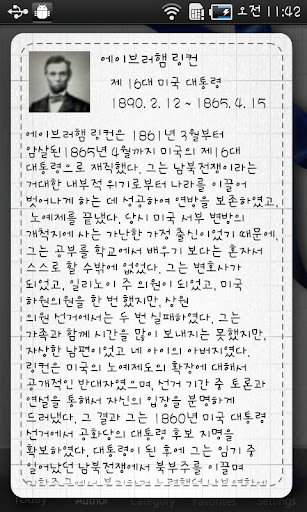 오전 11:42
에이브러햄 링컨
제 16대 미국 대통령
1890. 2. 12 ~ 1865. 4. 15
에이브러햄 링컨은 1861년 3월부터
암살된 1865년 4월까지 미국의 제16대
대통령으로 재직했다. 그는 남북전쟁이라는
거대한 내부적 위기로부터 나라를 이끌어
벗어나게 하는 데 성공하여 연방을 보존하였고,
노예제를 끝냈다. 당시 미국 서부 변방의
개척지에 사는 가난한 가정 출신이었기 때문에,
그는 공부를 학교에서 배우기 보다는 혼자서
스스로 할 수밖에 없었다. 그는 변호사가
되었고, 일리노이 주 의원이 되었고, 미국
하원의원을 한 번 했지만, 상원
의원 선거에서는 두 번 실패하였다. 그는
가족과 함께 시간을 많이 보내지는 못했지만,
자상한 남편이었고 네 아이의 아버지였다.
링컨은 미국의 노예제도의 확장에 대해서
공개적인 반대자였으며, 선거 기간 중 토론과
연설을 통해서 자신의 입장을 분명하게
드러냈다. 그 결과 그는 1860년 미국 대통령
선거에서 공화당의 대통령 후보 지명을
확보하였다. 대통령이 된 후에 그는 임기 중
일어났던 남북전쟁에서 북부주를 이끌며
Today Author Category Favorites Settings